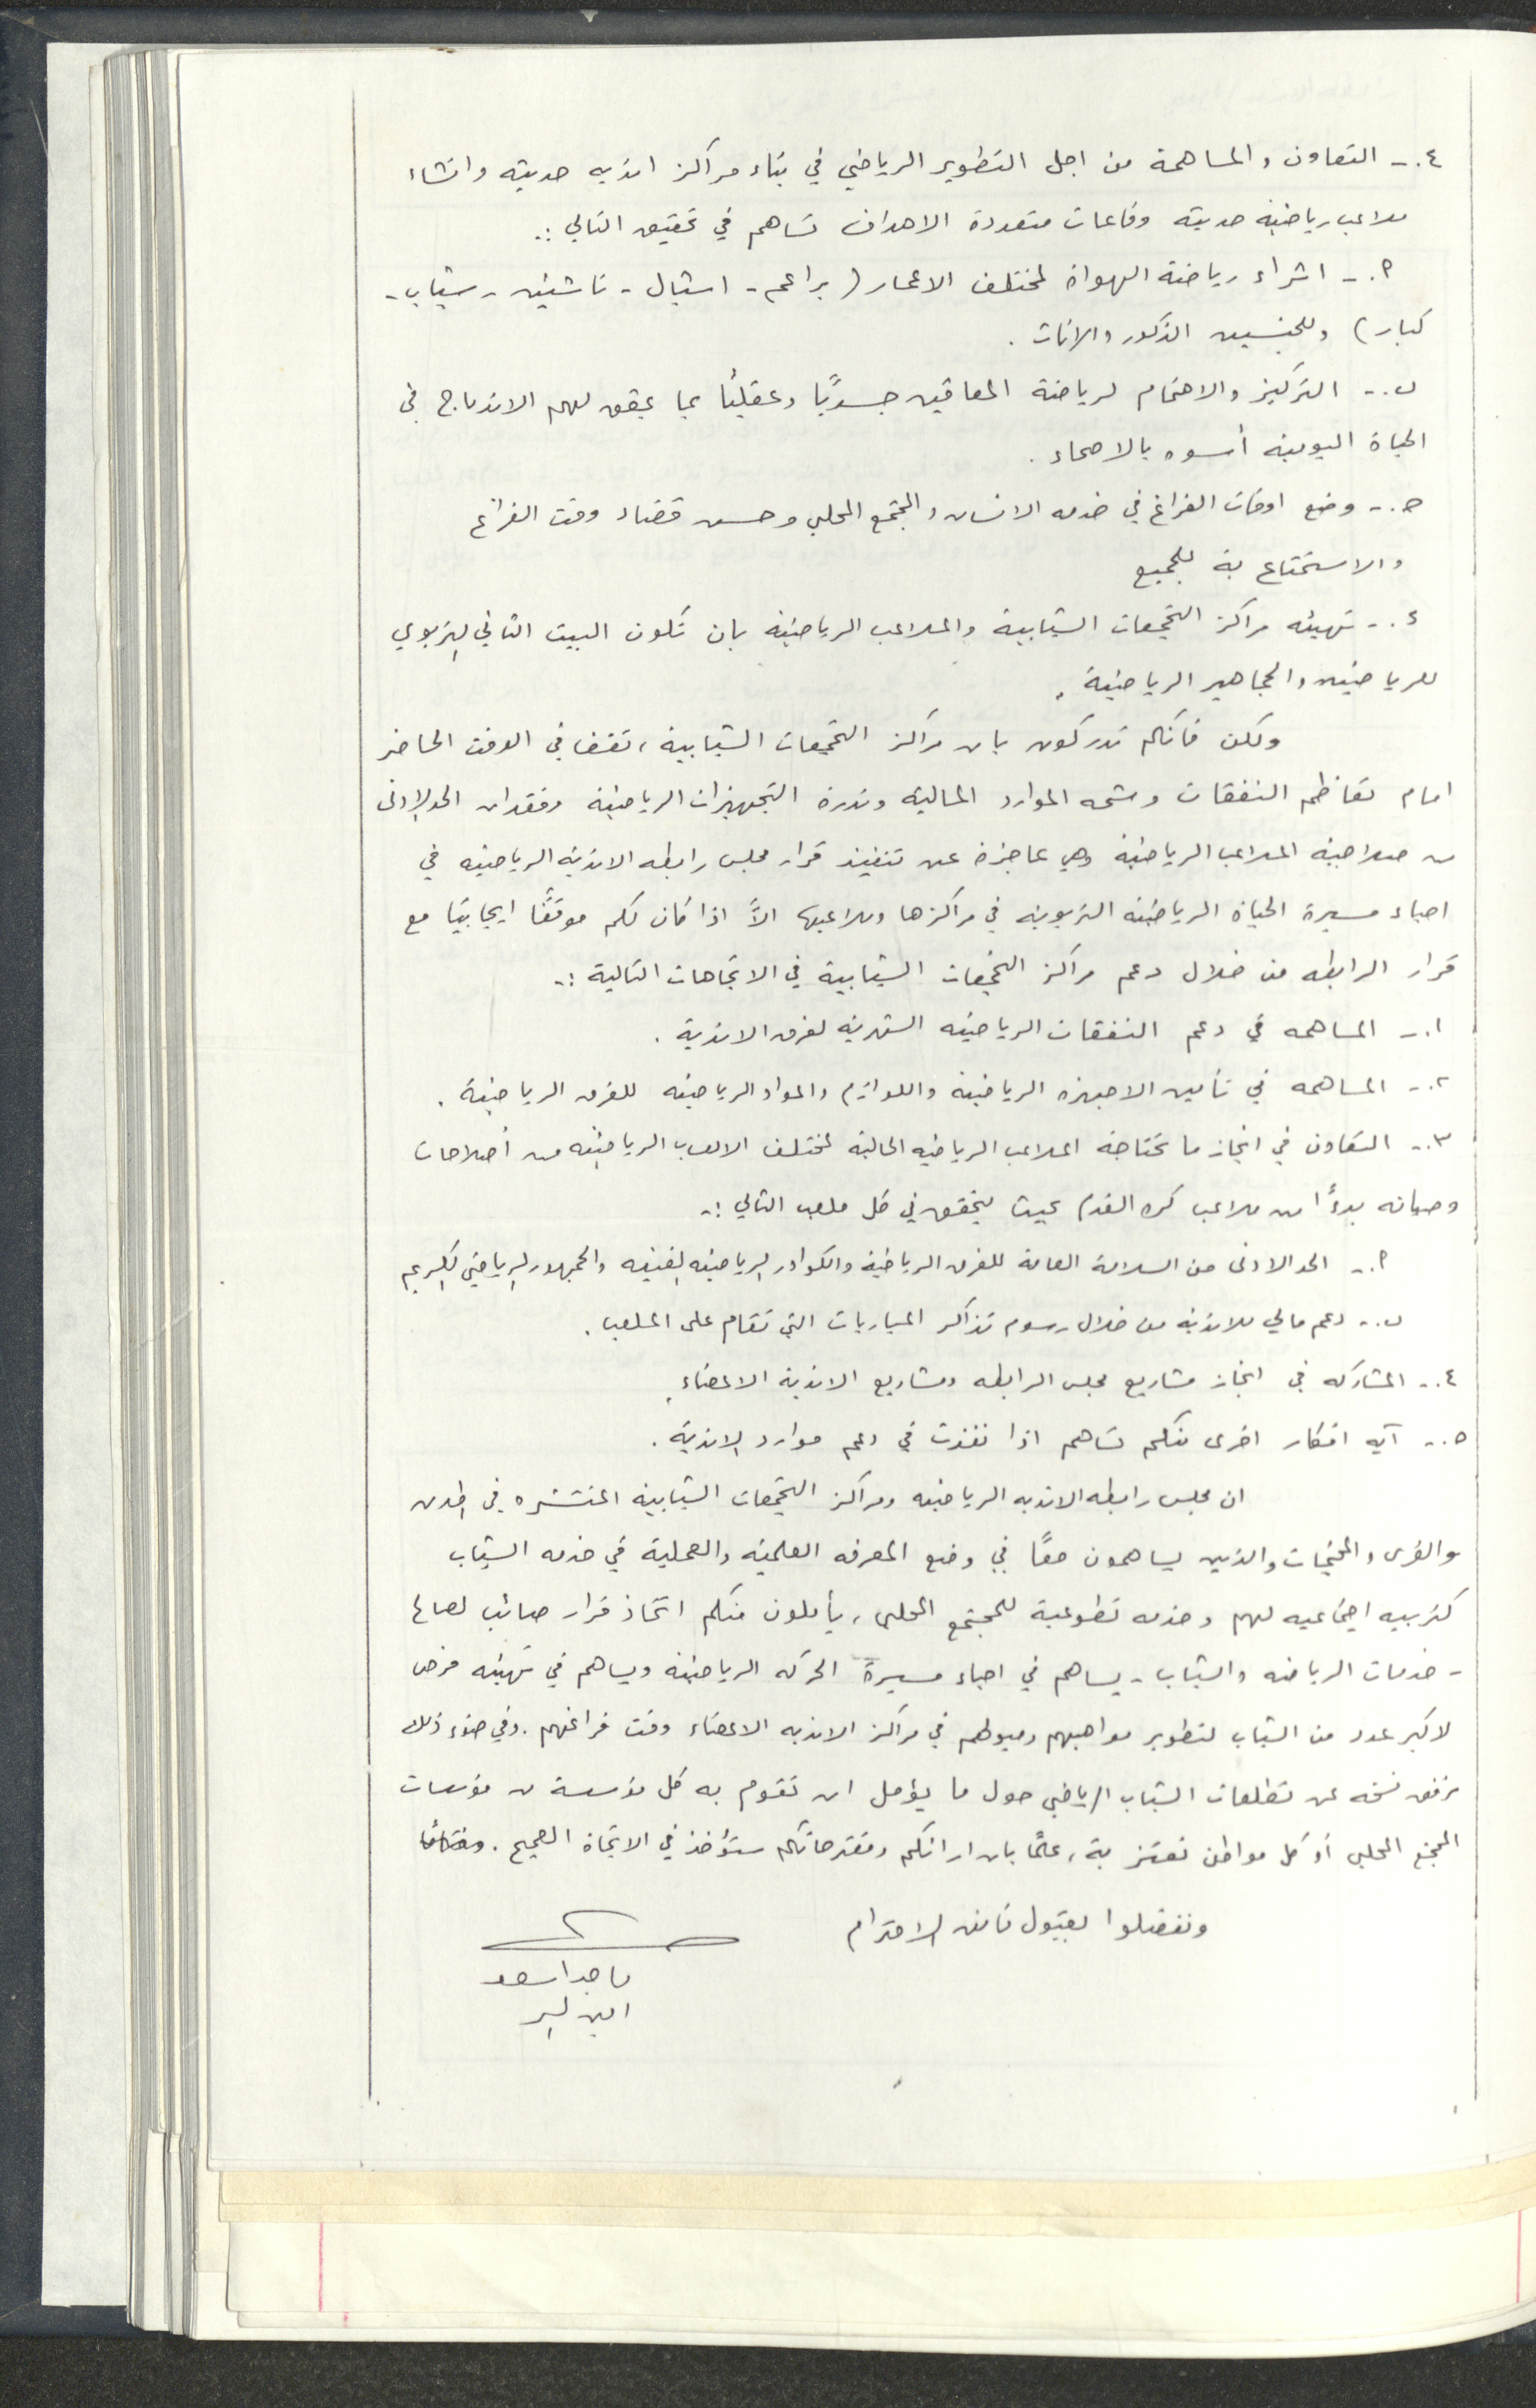 ٤.- التعاون والمساهمة من اجل التطوير الرياضي في بناء مراكز اندية حديثه وانشاء
ملاعب رياضيه حديثه وقاعات متعددة الاهداف تساهم في تحقيق التالي :.
أ.- اثراء رياضة الهواة لمختلف الاعمار ( براعم - اشبال - ناشئين - شباب -
كبار ) وللجنسين الذكور والاناث .
ب.- التركيز والاهتمام لرياضة المعاقين جسديًا وعقليًا بما يحقق لهم الاندماج في
الحياة اليومية أسوه بالاصحاء .
ج.- وضع اوقات الفراغ في خدمه الانسان والمجتمع المحلي وحسن قضاء وقت الفراغ
والاستمتاع بة للجميع
د.- تهيئه مراكز التجمعات الشبابية والملاعب الرياضيه بان تكون البيت الثاني التربوي
للرياضيين والجماهير الرياضية .
ولكن فانكم تدركون بان مراكز التجمعات الشبابية ، تقف في الوقت الحاضر
امام تعاظم النفقات وشحه الموارد المالية وندرة التجهيزات الرياضية وفقدان الحد الادنى
من صلاحية الملاعب الرياضية وهي عاجزة عن تنفيذ قرار مجلس رابطه الاندية الرياضيه في
احياء مسيرة الحياة الرياضيه التربويه في مراكزها وملاعبها الاً اذا كان لكم موقفًا ايجابيًا مع
قرار الرابطه من خلال دعم مراكز التجمعات الشبابية في الاتجاهات التالية :-
١.- المساهمه في دعم النفقات الرياضيه الشهرية لفرق الاندية .
٢.- المساهمه في تأمين الاجهزه الرياضية واللوازم والمواد الرياضيه للفرق الرياضية .
٣.- التعاون في انجاز ما تحتاجة الملاعب الرياضيه الحالية لمختلف الالعاب الرياضيه من أصلاحات
وصيانه بدءًا من ملاعب كره القدم بحيث يتحقق في كل ملعب التالي :-
أ.- الحد الادنى من السلامة العامة للفرق الرياضية والكوادر الرياضيه الفنيه والجمهور الرياضي الكريم
ب.- دعم مالي للاندية من خلال رسوم تذاكر المباريات التي تقام على الملعب .
٤.- المشاركه في انجاز مشاريع مجلس الرابطه ومشاريع الاندية الاعضاء
٥.- آيه افكار اخرى منكم تساهم اذا نفذت في دعم موارد الاندية .
ان مجلس رابطه الانديه الرياضيه ومراكز التجمعات الشبابية المنتشره في المدن
والقرى والمخيمات والذين يساهمون معًا في وضع المعرفه العلميه والعملية في خدمه الشباب
كتربيه اجتماعيه لهم وخدمه تطوعية للمجتمع المحلي ، يأملون منكم اتخاذ قرار صائب لصالح
- خدمات الرياضه والشباب - يساهم في احياء مسيرة الحركه الرياضية ويساهم في تهيئه فرص
لاكبر عدد من الشباب لتطوير مواهبهم وميولهم في مراكز الانديه الاعضاء وقت فراغهم . وفي ضوء ذلك
نرفق نسخه عن تطلعات الشباب الرياضي حول ما يؤمل ان تقوم به كل مؤسسة من مؤسسات
المجتمع المحلي أو كل مواطن نعتز بة ، علمًا بان ارائكم ومقترحاتكم ستؤخذ في الاتجاة الصحيح .
وتفضلوا بقبول فائق الاحترام
ماجد اسعد
امين السر